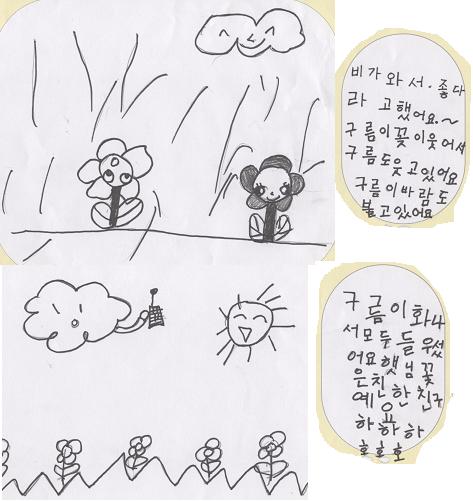 비가 와 서. 좋다
라 고했어요.~
구름이꽃이웃어서
구름도웃고있어요
구름이바람도
불고있어요
구름이화나
서모두들 우섰
어요햇님꽃
은친한친구
예용
하하하
호호호